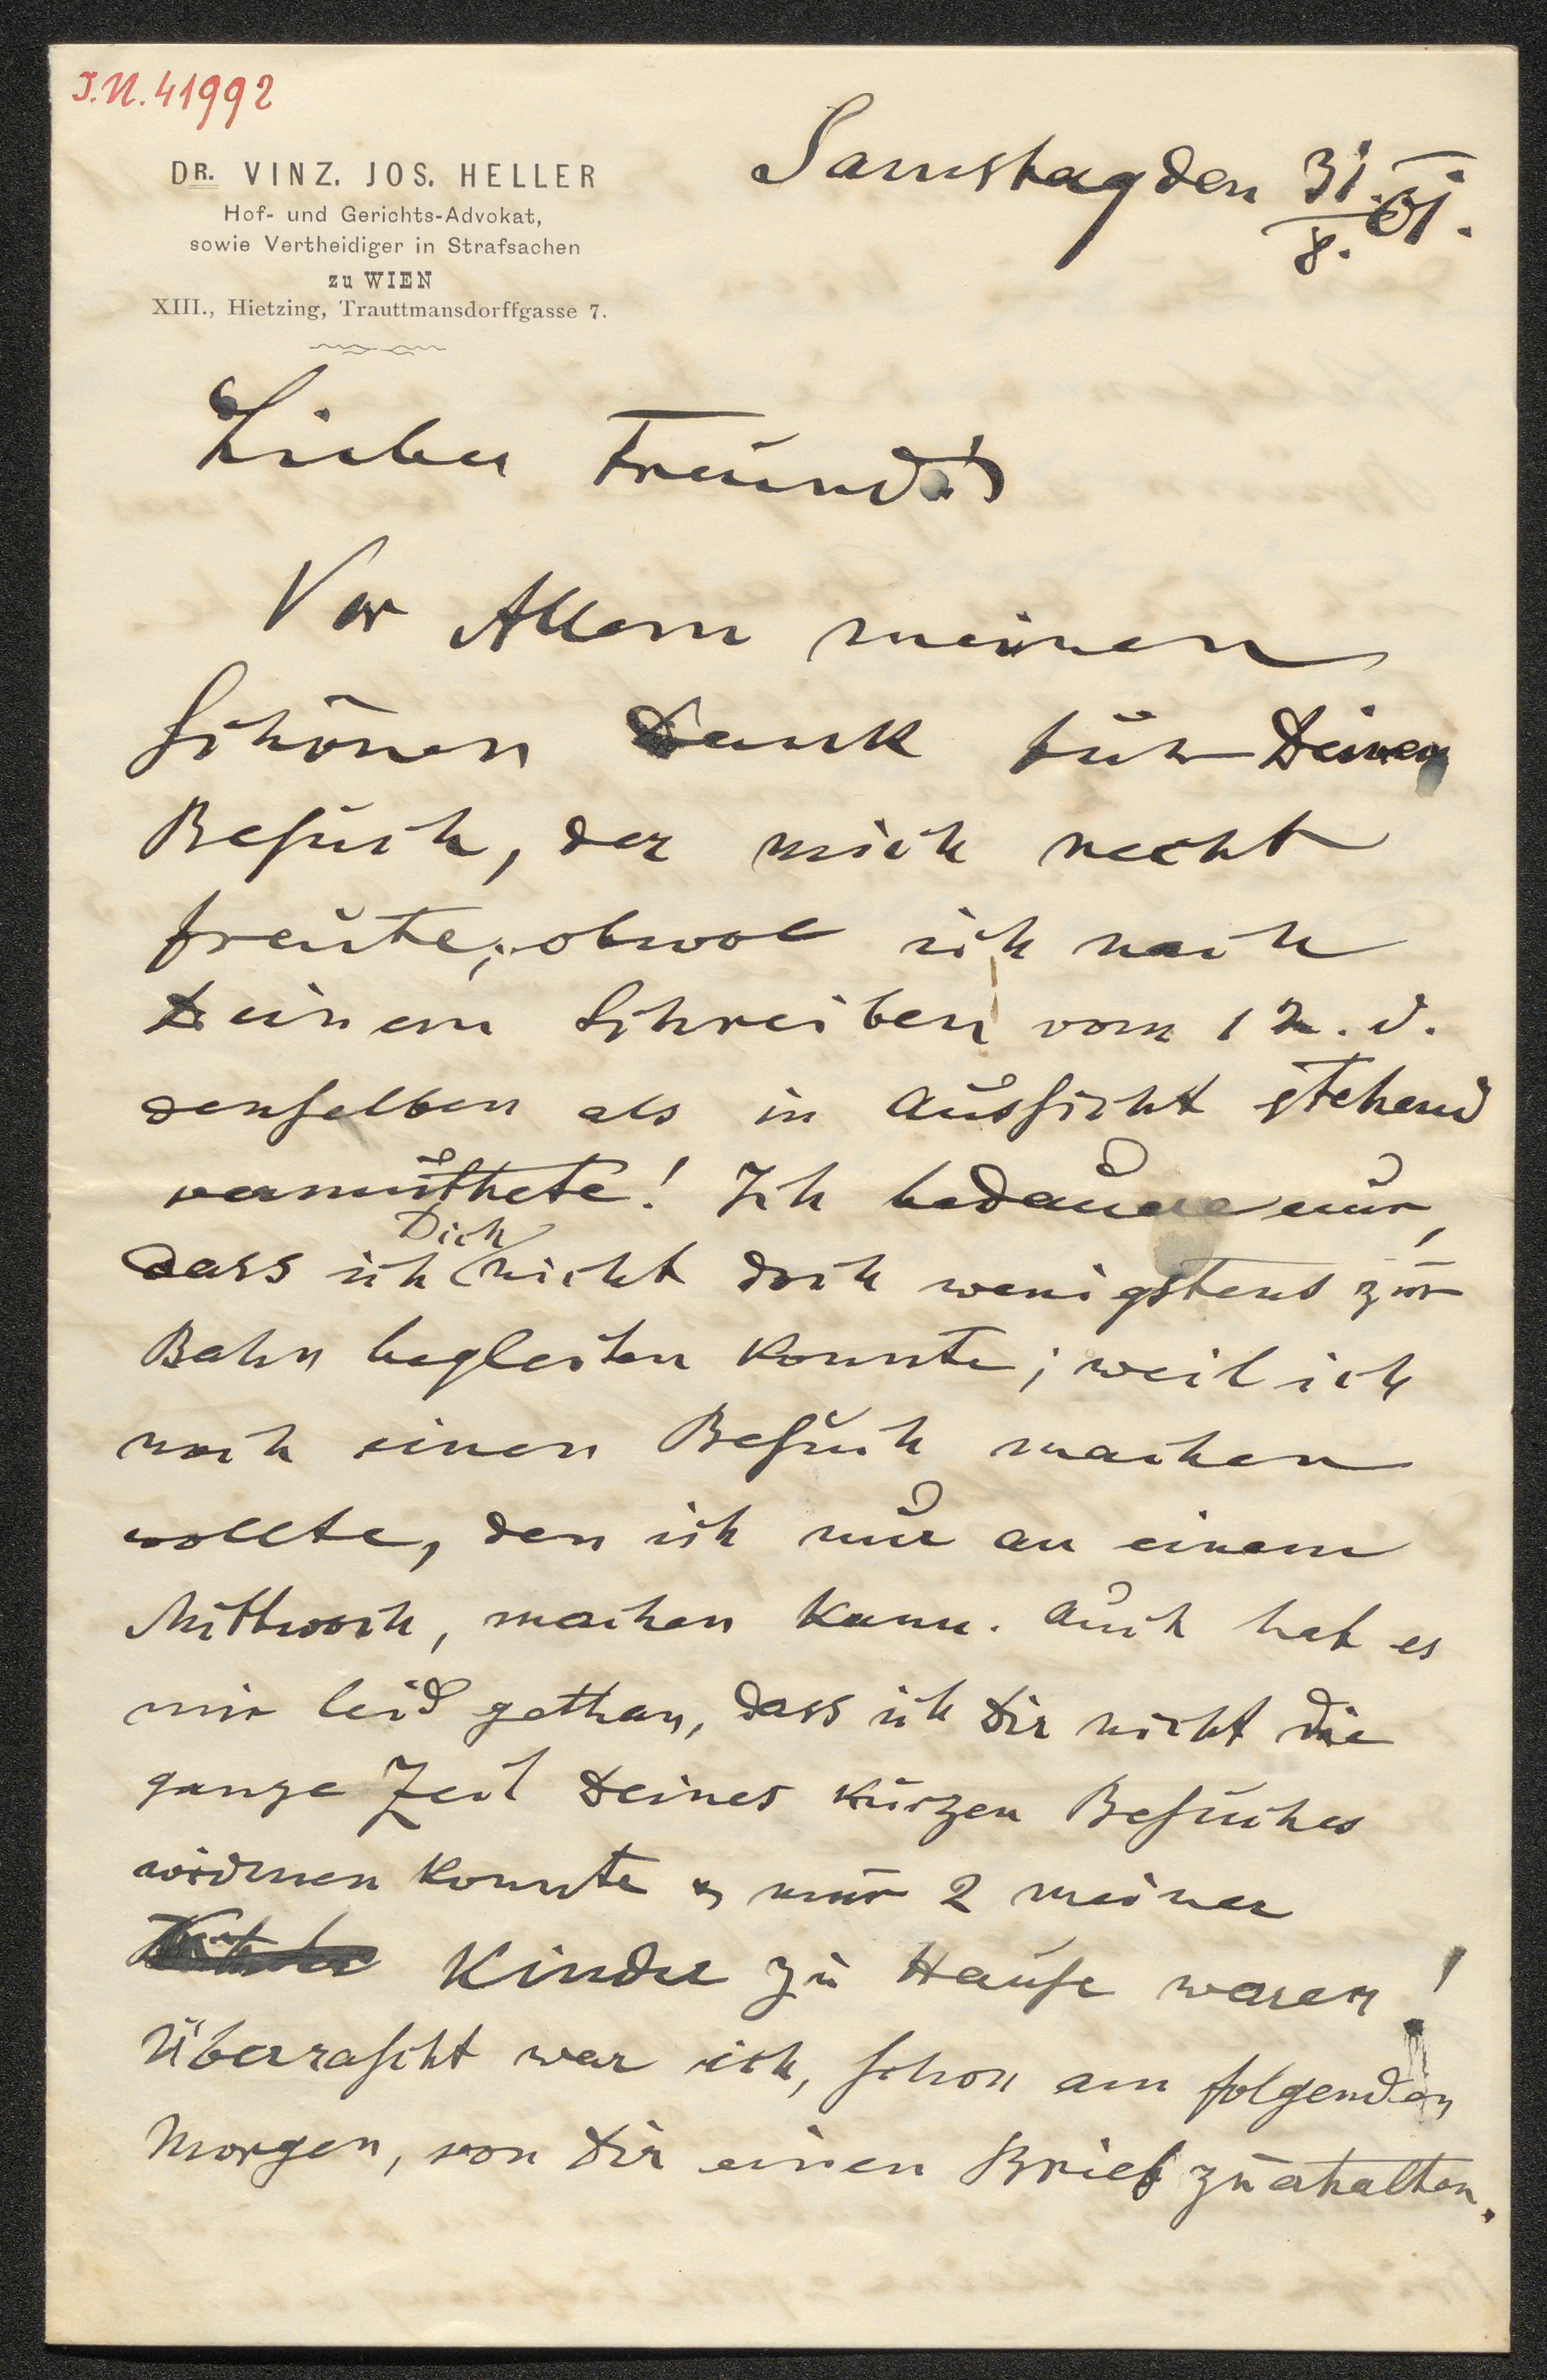 I.N. 41992
DR. VINZ. JOS. HELLER
Hof- und Gerichts-Advokat,
sowie Vertheidiger in Strafsachen
zu WIEN
XIII., Hietzing, Trauttmansdorffgasse 7.
Samstag den 31./8. 01.
Lieber Freund!
Vor Allem meinen
schönen Dank für Deinen
Besuch, der mich recht
freute, obwol ich nach
Deinem Schreiben vom 12. d.
denselben als in Aussicht stehend
vermuthete! Ich bedauere nur,
dass ich Dich nicht doch wenigstens zur
Bahn begleiten konnte; weil ich
noch einen Besuch machen
wollte, den ich nur an einem
Mittwoch, machen kann. Auch hat es
mir leid gethan, dass ich Dir nicht die
ganze Zeit Deines kurzen Besuches
widmen konnte & nur 2 meiner
Kinder zu Hause waren!
Überrascht war ich, schon am folgenden
Morgen, von Dir einen Brief zu erhalten.